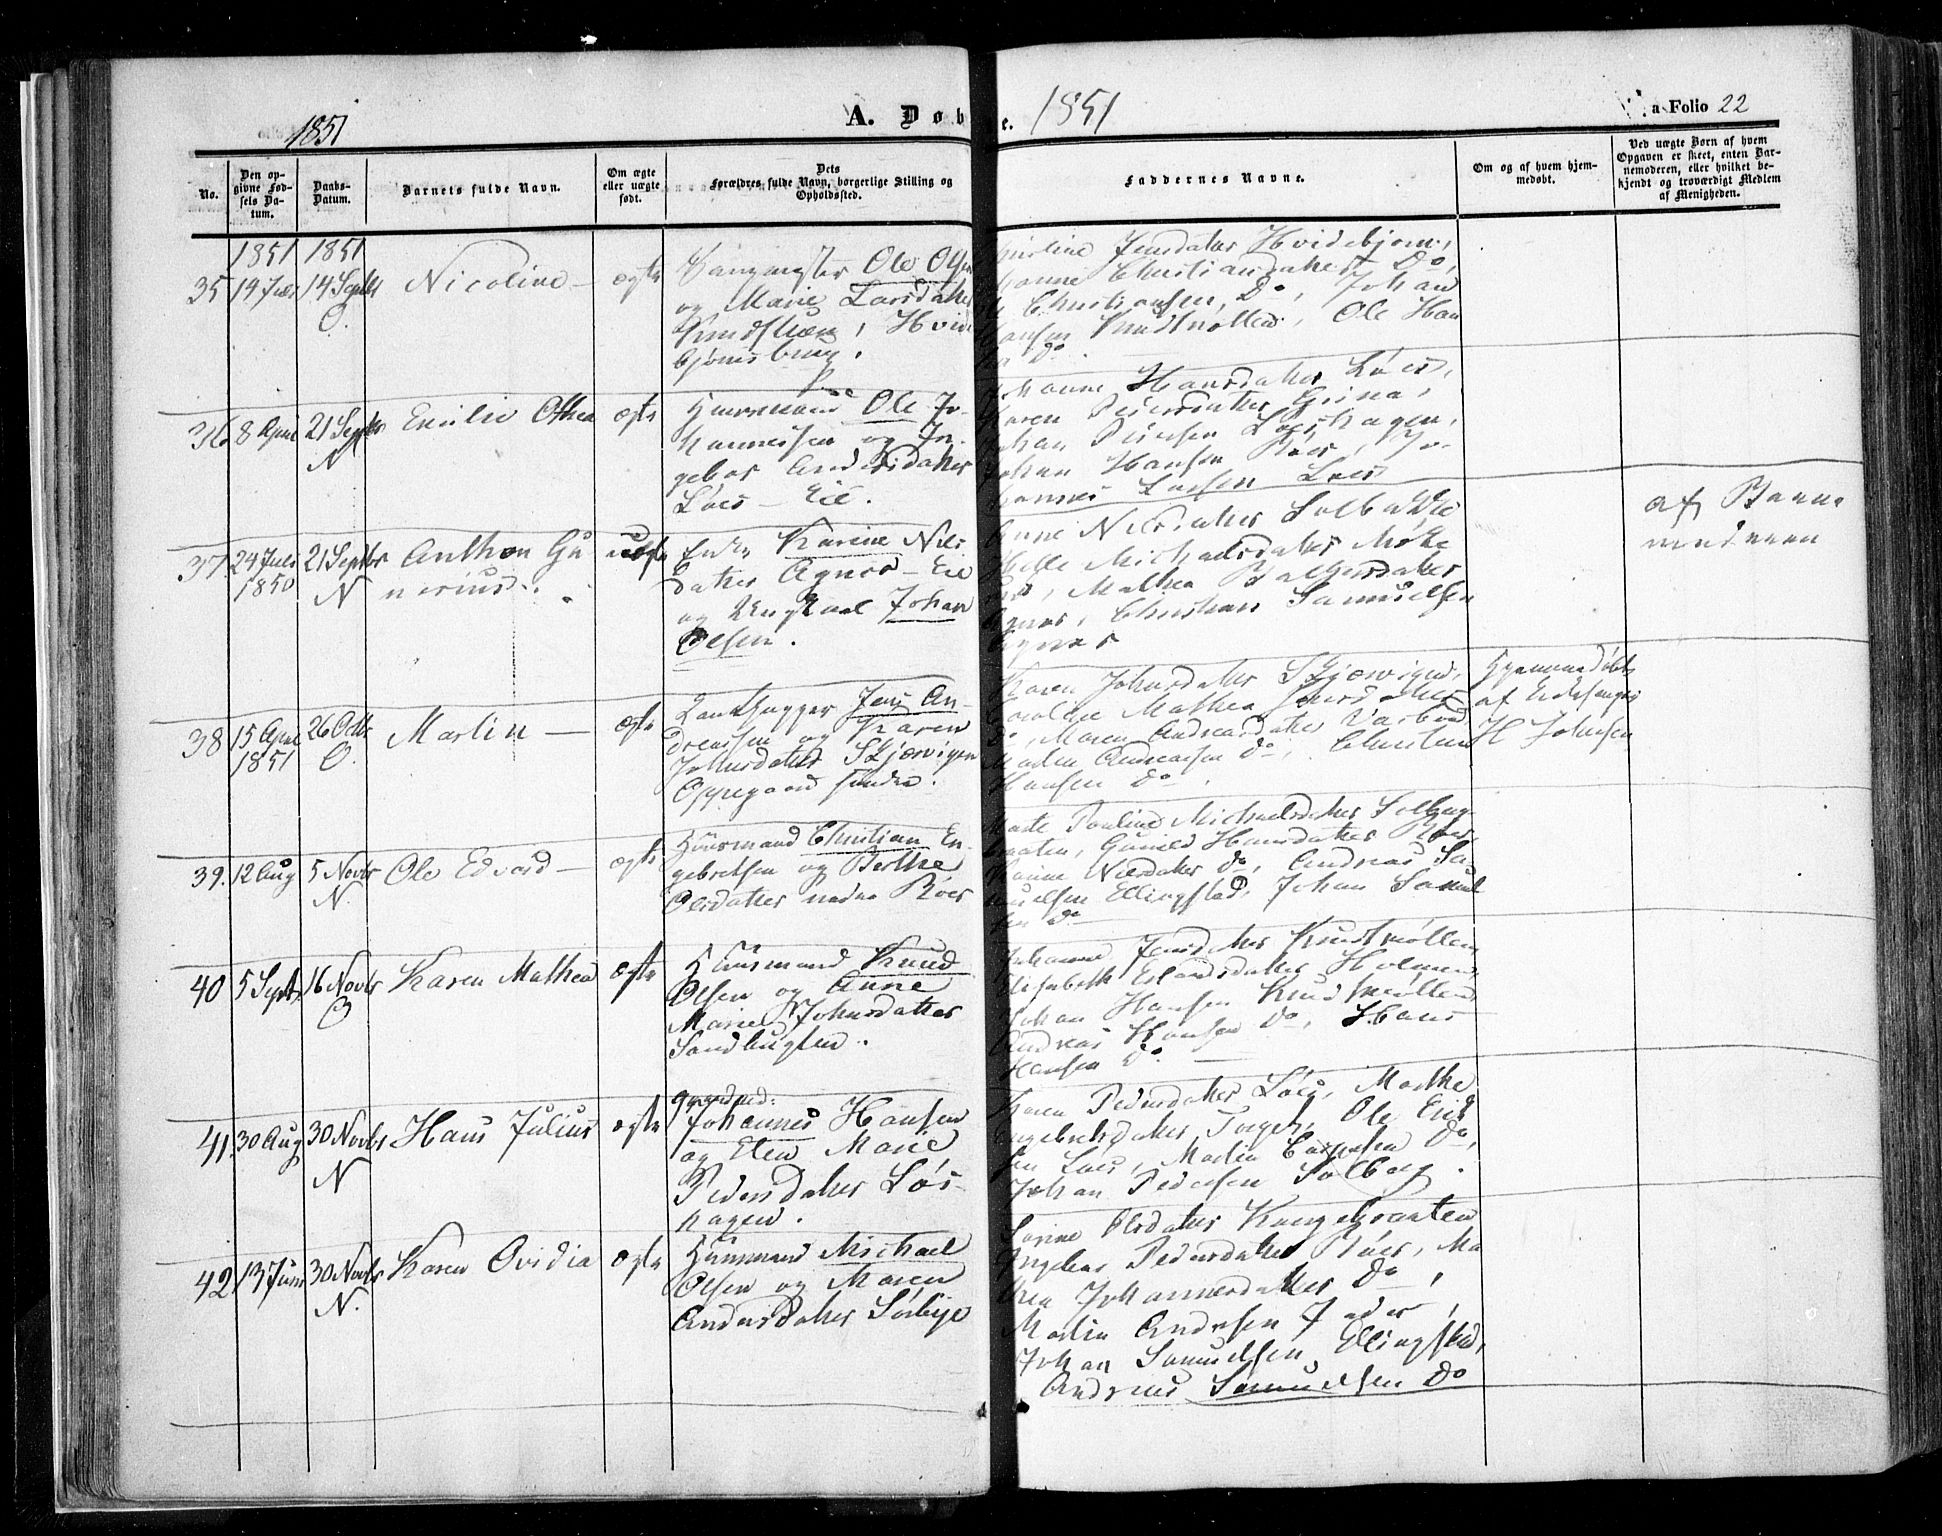 1851
A. Døb
e. 1851
a Folio 22
No.
Den op-
givne Fød-
sels Da-
tum.
Daabs-
Datum.
Barnets fulde Navn.
Om ægte
eller uægte
født.
Dets
Forældres fulde Navn, borgerlige Stilling og
Opholdssted.
Faddernes Navne.
Om og af hvem hjem-
medøbt.
Ved uægte Børn af hvem
Opgaven er skeet, enten Bar-
nemoderen, eller hvilket be-
kjendt og troværdigt Medlem
af Menigheden.
1851 1851
35 14 Septbr
O.
Nicoline
ægte
Ole Olsen
og Marie Larsdatter
Hvide
bjørns
Jensdatter Hvidebjørn,
Christiansdatter Do,
Christiansen, Do, Johan
Hansen Knudsmøllen, Ole Han
Do.
36 8 April 21 Septbr
N
Emilie Othea
ægte
Huusmand Ole Jo-
hannessen og In-
gebor Andersdatter
Løes - Eie.
Hansdatter Løes,
Karen Pedersdatter
Johan Pedersen Løeshagen,
Johan Hansen Røer, Jo-
hannes Larsen Løes
37 24 Juli 21 Septbr
1850 N
Anthon Gu
nerius.
uægte
Enke Karine Nils
datter Agnor - Eie
og Ungkarl Johan
Olsen.
Anne Nilsdatter Solberg
Helle Michaelsdatter
Mathea
Agnor, Christian Samuelsen
Agnor
af Barne
moderen
38 15 April 26 Octbr
1851 O.
Martin
ægte
Jens An-
dreassen og Karen
Johnsdatter Skjærvigen
Oppegaard søndre.
Karen Johnsdatter Skjærvigen,
Mathea Jensdatter
Do, Maren Andreasdatter
Martin Andreasen Do, Christian
Hansen Do.
Hjemmedøbt
af
H Johnsen
39. 12 Aug 5 Novbr
N.
Ole Edvard
ægte
Huusmand Christian En-
gebretsen og Berthe
Olsdatter nedre Røer
Marte Pauline Michaelsdatter Solberg
braaten, Gunild Hansdatter Røer
Hanne Nilsdatter Do, Andreas Sa-
muelsen Ellingstad, Johan Samuel
sen Do
40 5 Septbr 16 Novbr
O
Karen Mathea
ægte
Huusmand Knud
Olsen og Anne
Marie Johnsdatter
Sandbugten.
Johanne Jensdatter Knudsmøllen,
Elisabeth Erlandsdatter Holmen,
Johan Hansen Knudsmøllen
Andreas Hansen Do, Hans
Hansen Do.
41. 30 Aug 30 Novbr
N
Hans Julius
ægte
Gaardmd:
Johannes Hansen
og Elen Marie
Pedersdatter Løs-
hagen.
Karen Pedersdatter Løes, Marthe
Engebretsdatter Torget, Ole Erik
sen Løes, Martin Do,
Johan Pedersen Solberg.
42 13 Juni 30 Novbr
N.
Karen Ovidia
ægte
Huusmand Michael
Olsen og Maren
Andersdatter Sørbye
Karine Olsdatter Kongebraaten
Ingebor Pedersdatter Røer, Ma
thea Johannesdatter Do,
Martin Andersen
Johan Samuelsen Ellingstad,
Andreas Samuelsen Do